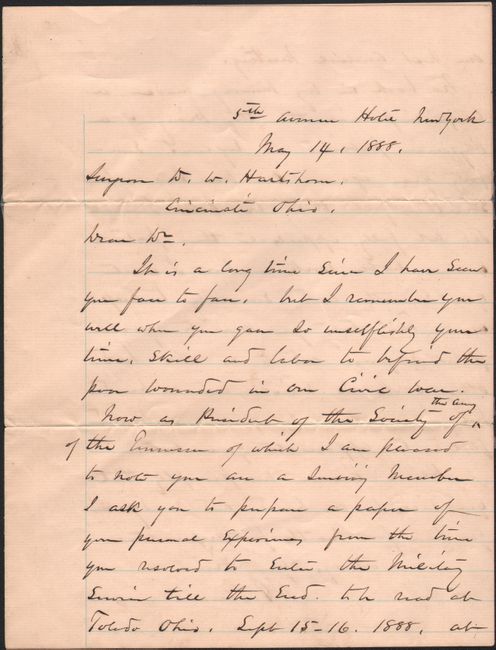 5th Avenue Hotel New York
May 14, 1888.
Surgeon D. W. Hartshorn.
Cincinnati Ohio.
Dear Dr.
It is a long time since I have seen
you face to face, but I remember you
well when you gave so unselfishly your
time, skill and labor to befriend the
poor wounded in our Civic war.
Now as President of the Society of the Army
of the Tennessee of which I am pleased
to note you are a Surviving Member
I ask you to prepare a paper of
your personal Experiences from the time
you resolved to Enter the Military
Service till the End. to be read at
Toledo Ohio. Sept 15-16. 1888, at